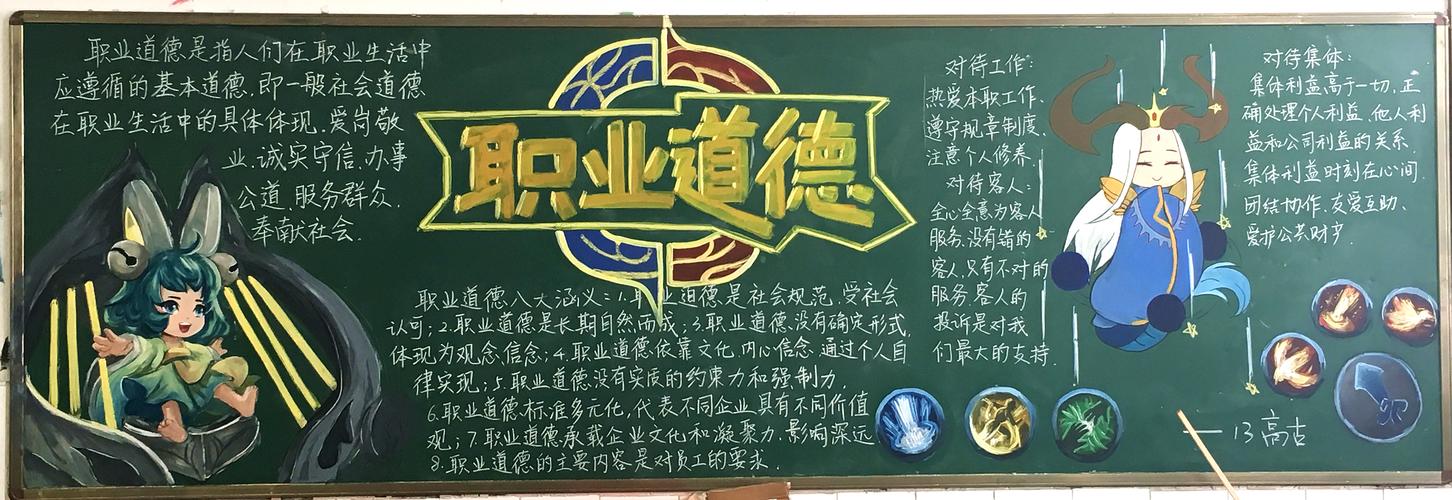 职业道德是指人们在职业生活中
应遵循的基本道德,即一般社会道德
在职业生活中的具体体现,爱岗敬
业、诚实守信、办事
公道、服务群众、
奉献社会.
职业道德
职业道德八大涵义:1.职业道德是社会规范,受社会
认可;2.职业道德是长期自然而成;3.职业道德没有确定形式,
体现为观念、信念;4.职业道德依靠文化、内心信念、通过个人自
律实现;5.职业道德没有实质的约束力和强制力.
6.职业道德标准多元化,代表不同企业具有不同价值
观;7.职业道德承载企业文化和凝聚力,影响深远.
8.职业道德的主要内容是对员工的要求.
对待工作:
热爱本职工作、
遵守规章制度、
注意个人修养.
对待客人:
全心全意为客人
服务、没有错的
客人,只有不对的
服务、客人的
投诉是对我
们最大的支持.
对待集体:
集体利益高于一切,正
确处理个人利益、他人利
益和公司利益的关系
集体利益时刻在心间.
团结协作、友爱互助、
爱护公共财产.
一13高古